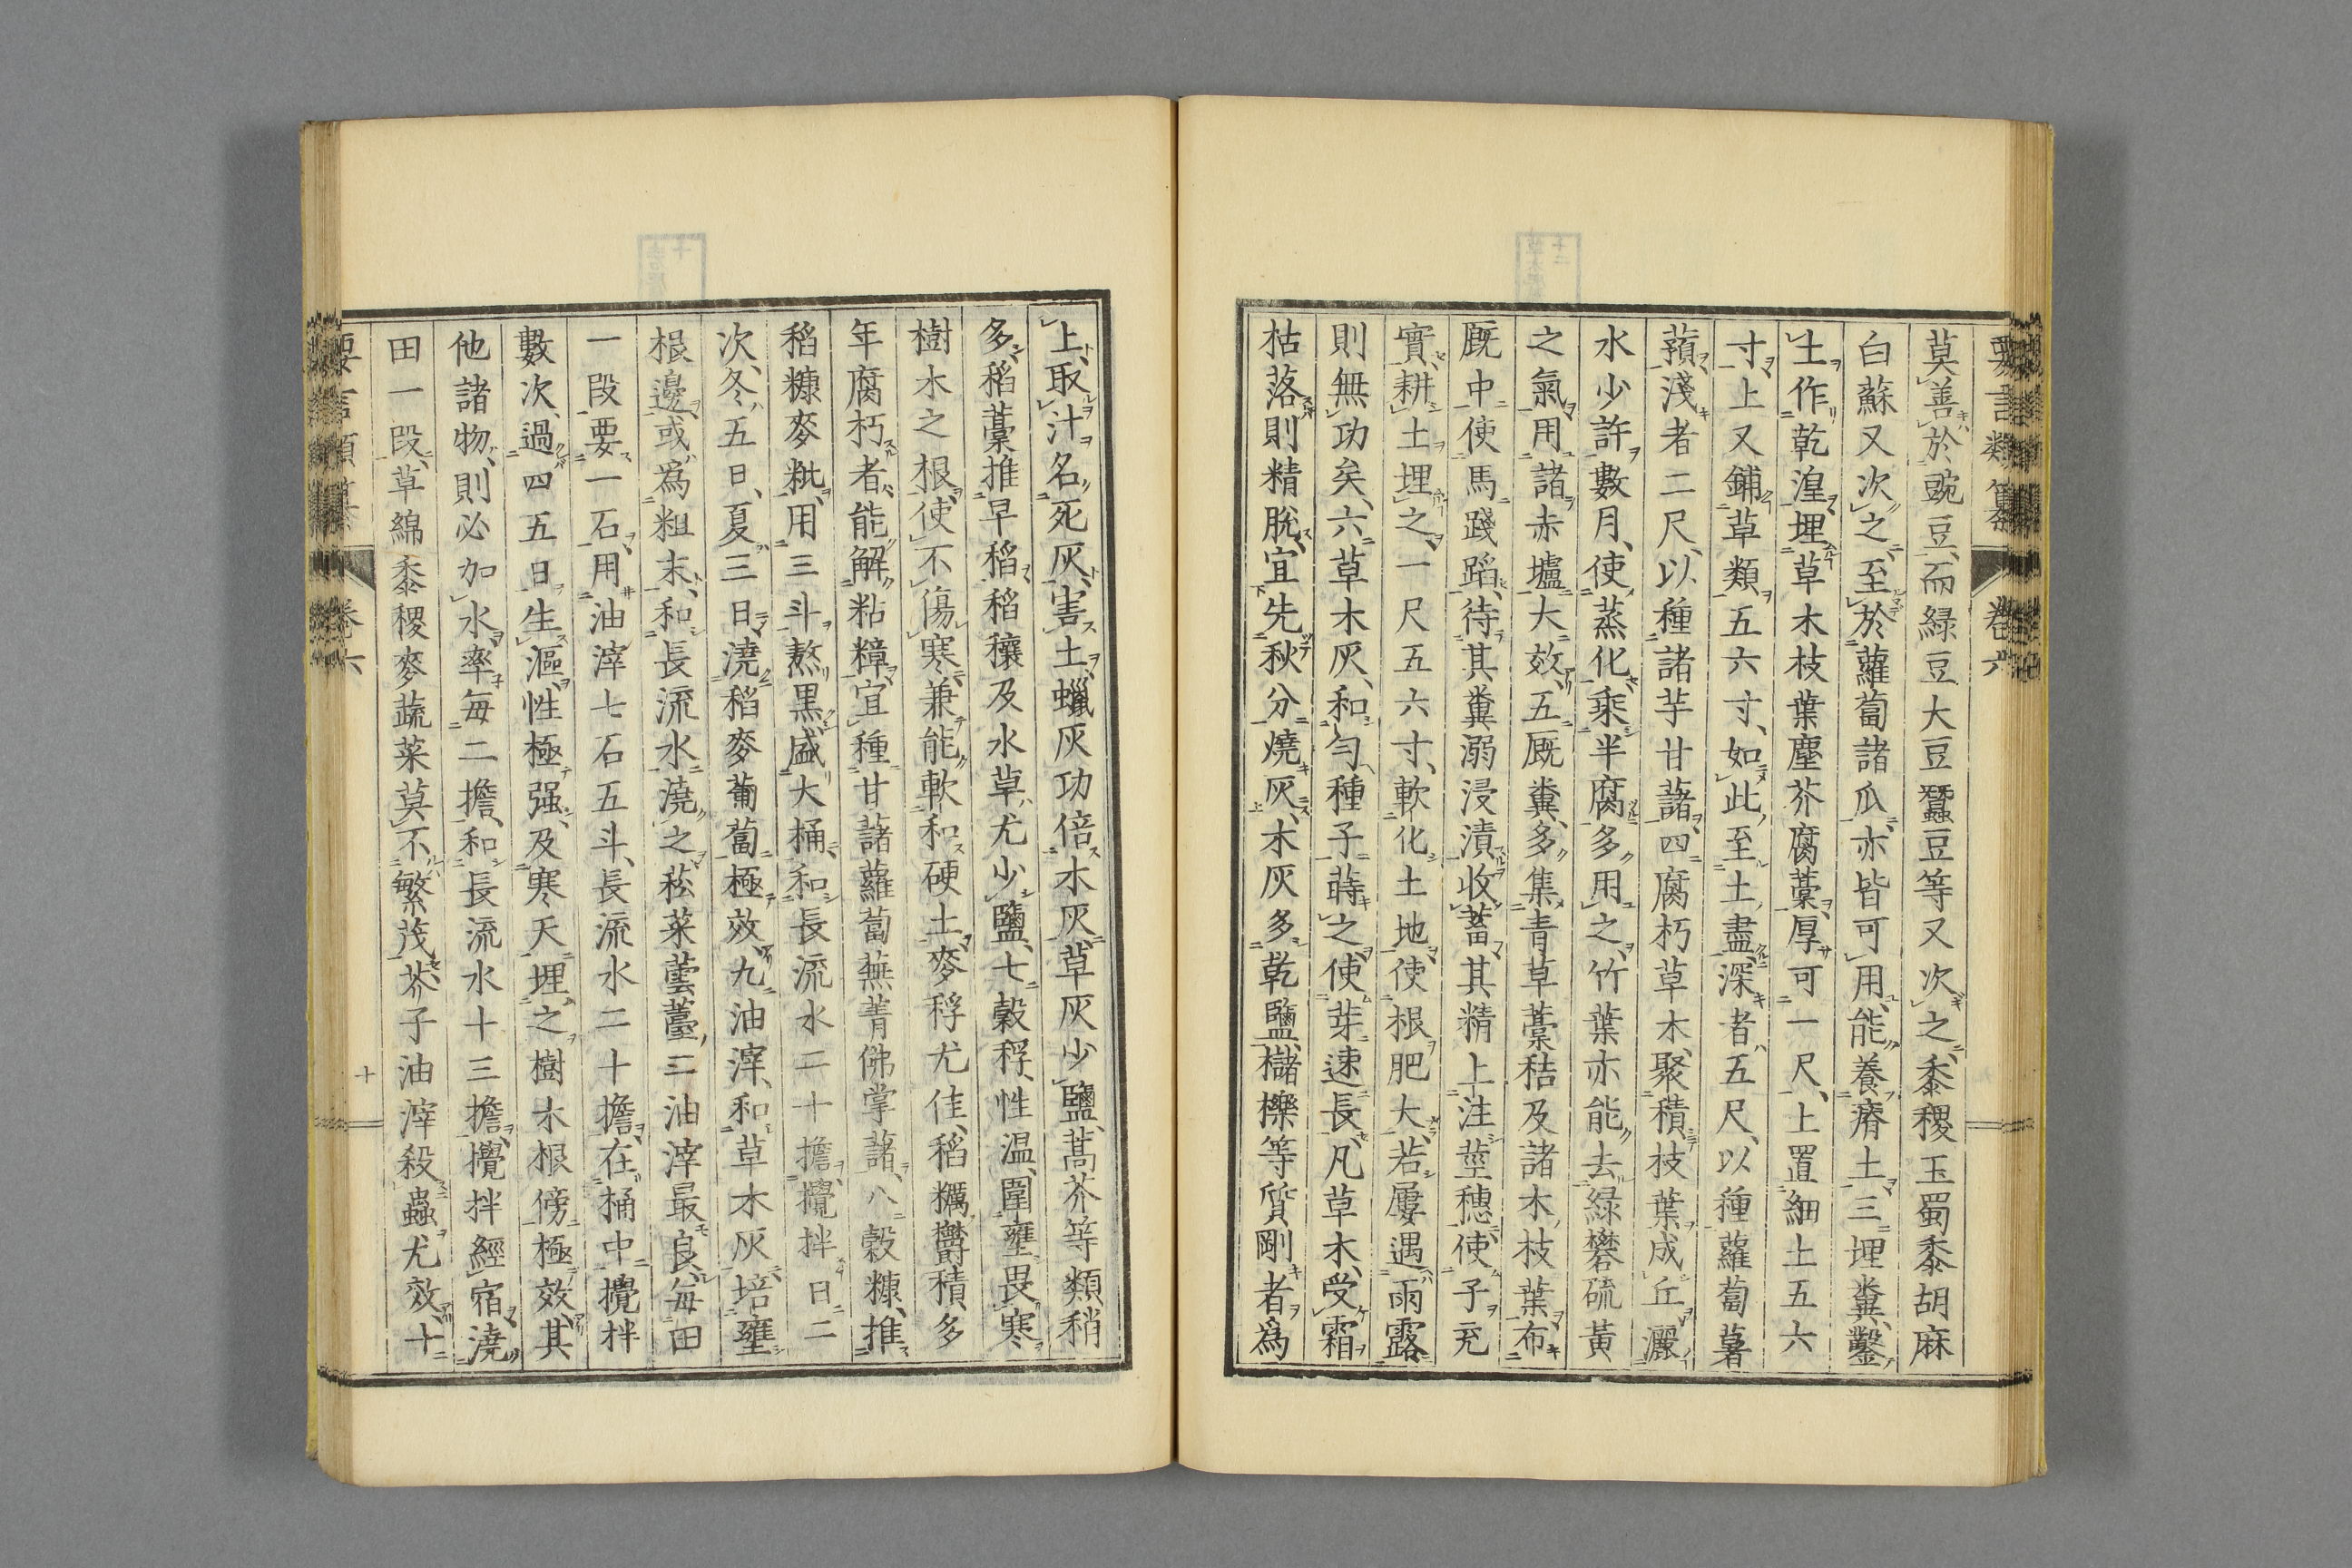 要言類纂 卷六
莫善於豌豆、而緑豆大豆蠶豆等又次之、黍稷玉蜀黍胡麻
白蘇又次之、至於蘿蔔諸瓜亦皆可用、能養瘠土三埋糞、鑿
土作乾湟埋草木枝葉塵芥腐藁、厚可一尺、上置細土五六
寸上又鋪草類五六寸、如此至土盡、深者五尺、以種蘿蔔薯
蕷淺者二尺、以種諸芋甘藷、四腐朽草木、聚積枝葉成丘灑
水少許數月、使蒸化乘半腐多用之、竹葉亦能去緑礬硫黃
之氣用諸赤壚大效、五厩糞、多集青草藁秸及諸木枝葉布
厩中使馬踐蹈、待其糞溺浸漬收蓄其精上注莖穗、使子充
實、耕土埋之、一尺五六寸、軟化土地、使根肥大、若屢遇雨露
則無功矣、六草木灰、和勻種子蒔之、使芽速長、凡草木、受霜
枯落則精脫、宜先秋分燒灰、木灰多乾鹽、櫧櫟等質剛者爲
上、取汁名死灰、害土、蠟灰功倍木灰、草灰少鹽、蒿芥等類稍
多、稻藁推早稻、稻穰及水草、尤少鹽、七穀稃、性温、圍壅畏寒
樹木之根、使不傷寒、兼能軟和硬土、麥稃尤佳、稻糲欝積、多
年腐朽者、能解粘糚、宜種甘藷蘿蔔蕪菁佛掌藷、八穀糠、推
稻糠麥粃、用三斗熬黑、盛大桶、和長流水二十擔、攪拌日二
次、冬五日、夏三日、澆稻麥蔔蔔極效、九油滓、和草木灰、培壅
根邊、或爲粗末、和長流水澆之菘菜蕓薹、二油滓最良、每田
一段要一石、用油滓七石五斗、長流水二十擔、在桶中攪拌
數次、過四五日生漚、性極强、及寒天埋之、樹木根傍極效、其
他諸物、則必加水、率每二擔、和長流水十三擔、攪拌經宿澆
田一段、草綿黍稷麥蔬菜莫不繁茂、芥子油滓殺蟲尤效、十
要言類纂 卷六 十